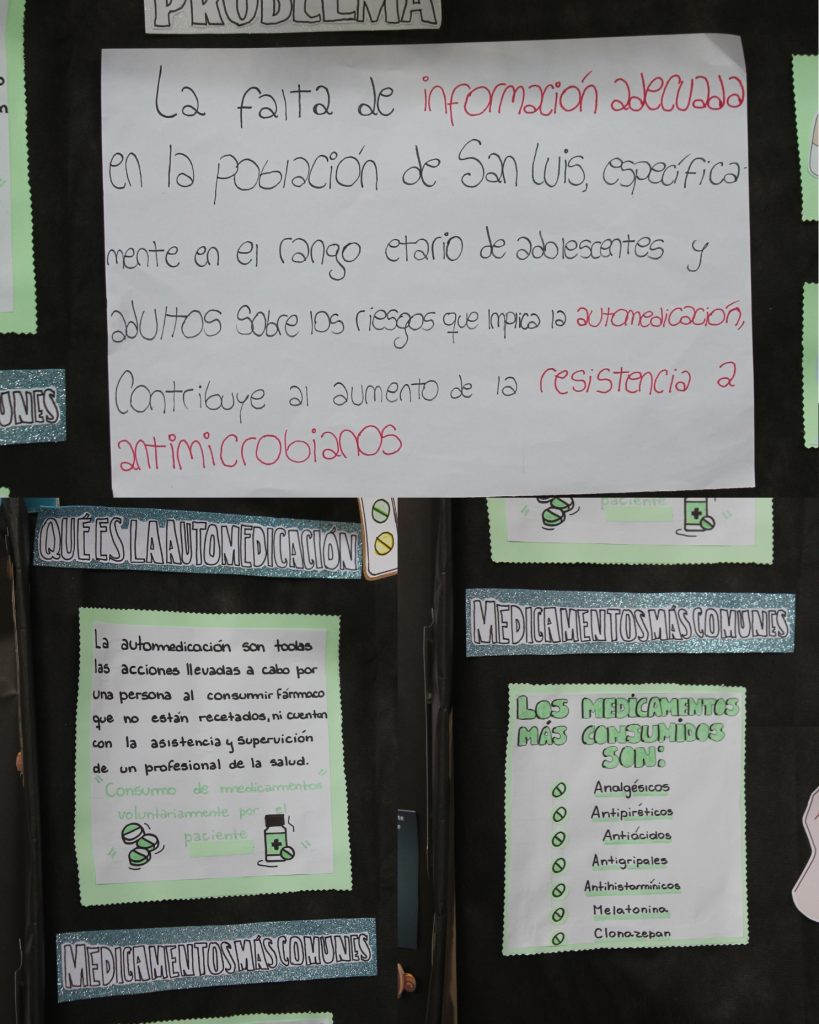 PROBLEMA
La falta de información adecuada
en la población de San Luis, específica-
mente en el rango etario de adolescentes y
adultos sobre los riesgos que implica la automedicación,
Contribuye al aumento de la resistencia a
antimicrobianos
UNES
QUÉ ES LA AUTOMEDICACIÓN
La automedicación son todas
las acciones llevadas a cabo por
una persona al consumir fármaco
que no están recetados, ni cuentan
con la asistencia y supervición
de un profesional de la salud.
"Consumo de medicamentos
voluntariamente por el
paciente"
MEDICAMENTOS MÁS COMUNES
paciente
MEDICAMENTOS MÁS COMUNES
LOS MEDICAMENTOS
MÁS CONSUMIDOS
SON:
Analgésicos
Antipiréticos
Antiácidos
Antigripales
Antihistamínicos
Melatonina
Clonazepan